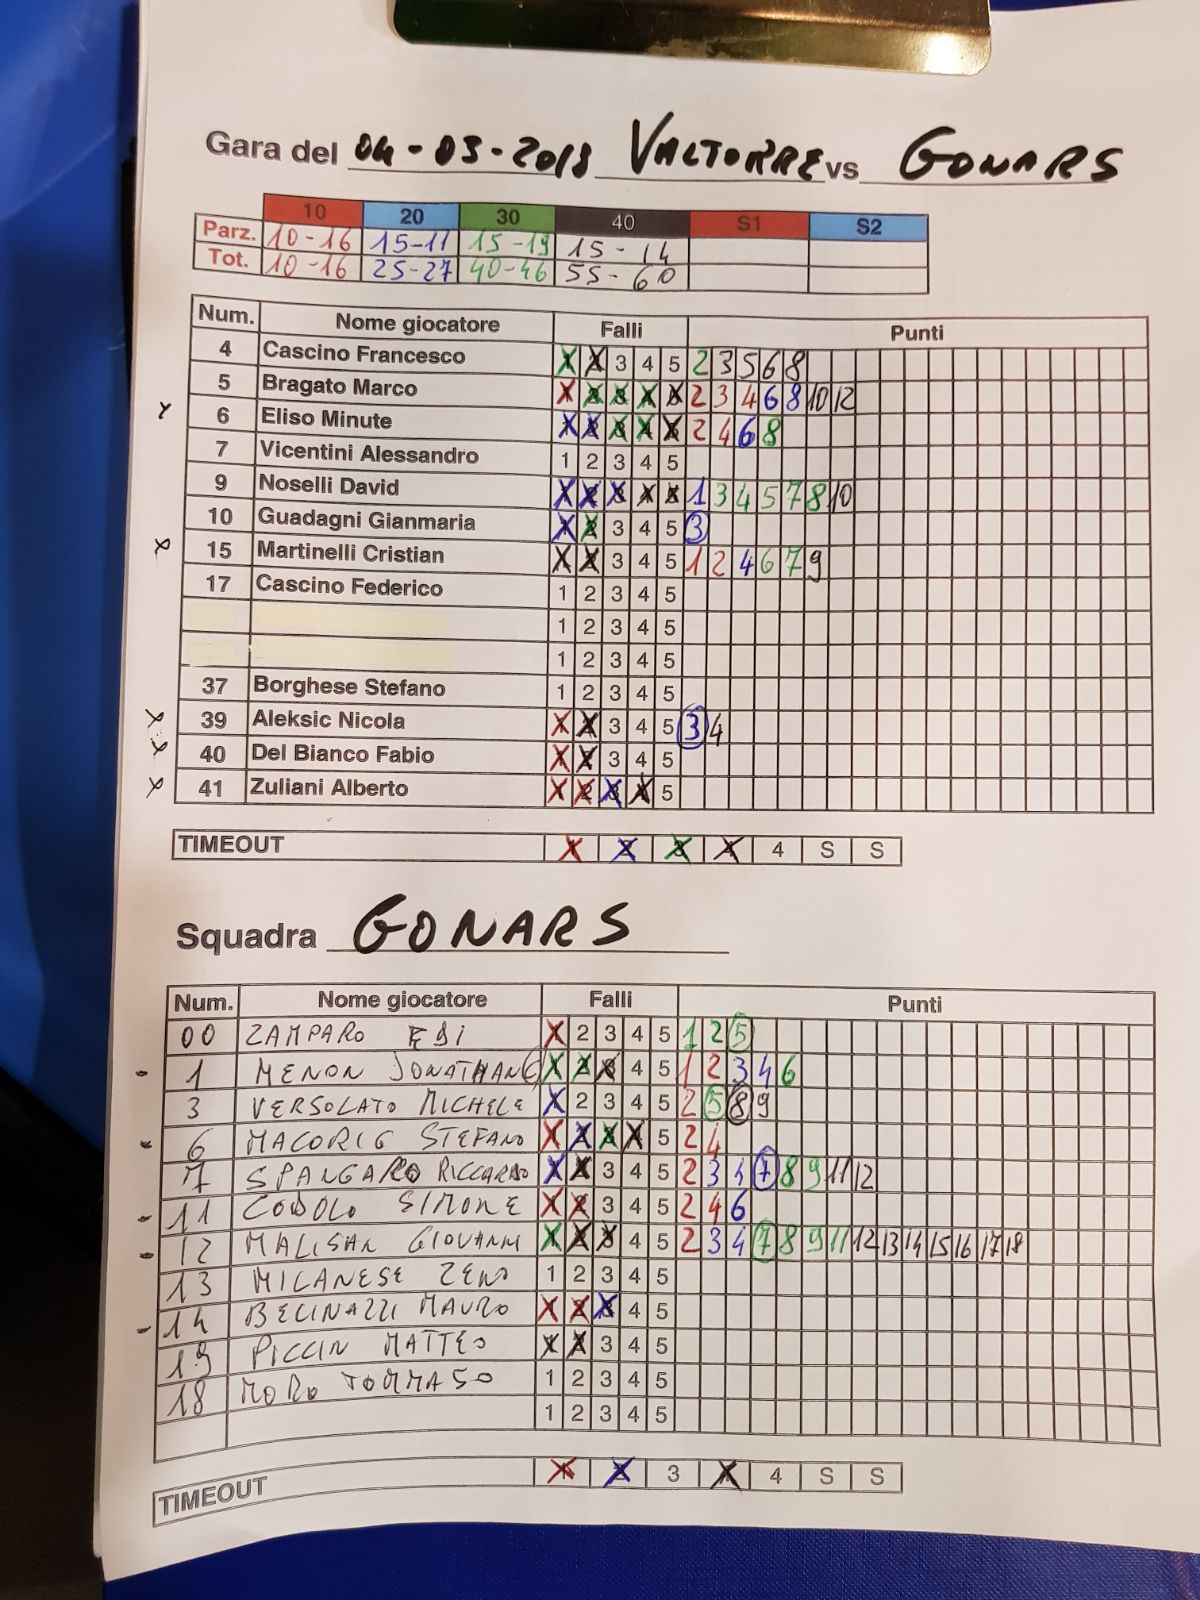 Gara del 04-03-2018 VALTORRE vs GONARS
10 20 30 40 S1 S2
Parz. 10-16 15-11 15-19 15-14
Tot. 10-16 25-27 40-46 55-60
Num. Nome giocatore Falli Punti
4 Cascino Francesco 1 2 3 4 5 2 3 5 6 8
5 Bragato Marco 1 2 3 4 5 2 3 4 6 8 10 12
6 Eliso Minute 1 2 3 4 5 2 4 6 8
7 Vicentini Alessandro 1 2 3 4 5
9 Noselli David 1 2 3 4 5 1 3 4 5 7 8 10
10 Guadagni Gianmaria 1 2 3 4 5 3
15 Martinelli Cristian 1 2 3 4 5 1 2 4 6 7 9
17 Cascino Federico 1 2 3 4 5
1 2 3 4 5
1 2 3 4 5
37 Borghese Stefano 1 2 3 4 5
39 Aleksic Nicola 1 2 3 4 5 3 4
40 Del Bianco Fabio 1 2 3 4 5
41 Zuliani Alberto 1 2 3 4 5
TIMEOUT 1 2 3 4 4 S S
Squadra GONARS
Num. Nome giocatore Falli Punti
00 ZAMPARO EDI 1 2 3 4 5 1 2 5
1 MENON JONATHAN 1 2 3 4 5 1 2 3 4 6
3 VERSOLATO MICHELE 1 2 3 4 5 2 5 8 9
6 MACORIG STEFANO 1 2 3 4 5 2 4
7 SPANGARO RICCARDO 1 2 3 4 5 2 3 4 7 8 9 11 12
11 CODOLO SIMONE 1 2 3 4 5 2 4 6
12 MALISAN GIOVANNI 1 2 3 4 5 2 3 4 7 8 9 11 12 13 14 15 16 17 18
13 MILANESE ZENO 1 2 3 4 5
14 BELINAZZI MAURO 1 2 3 4 5
19 PICCIN MATTEO 1 2 3 4 5
18 MORO TOMMASO 1 2 3 4 5
1 2 3 4 5
TIMEOUT 1 2 3 4 S S